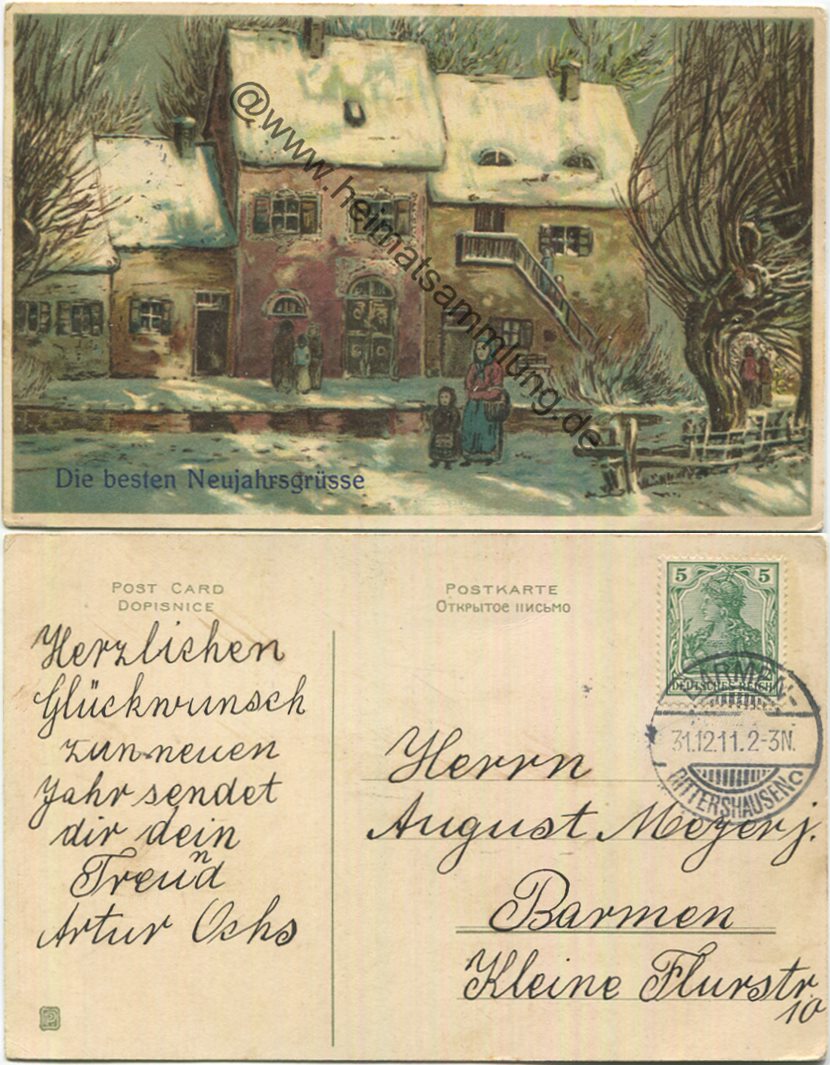 @www.heimatsammlung.de
Die besten Neujahrsgrüsse
POST CARD
DOPISNICE
POSTKARTE
Открытое письмо
5 5
DEUTSCHES REICH
BARMEN-
31.12.11.2-3N.
RITTERSHAUSEN
Herzlichen
Glückwunsch
zun neuen
Jahr sendet
dir dein
Freund
Artur Ochs
Herrn
August Meyer j.
Barmen
Kleine Flurstr.
10